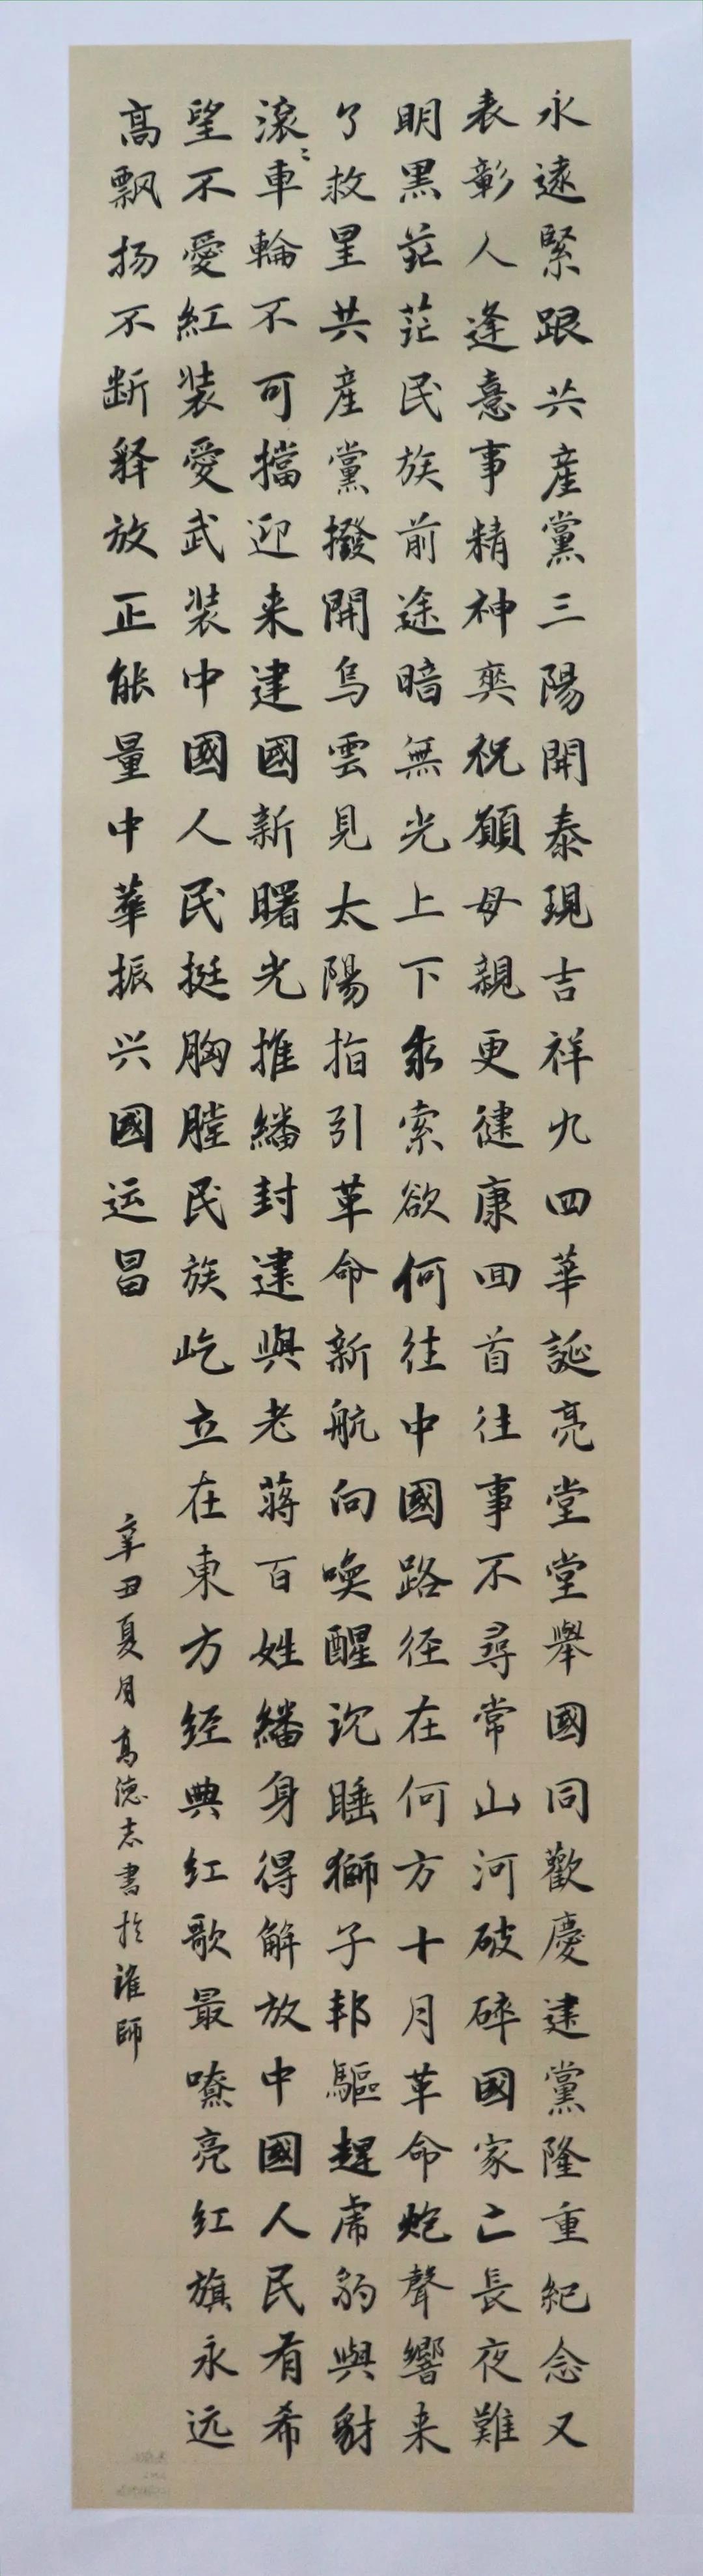 永遠緊跟共産黨三陽開泰現吉祥九四華誕亮堂堂舉國同歡慶建黨隆重紀念又
表彰人逢憙事精神爽祝願母親更健康回首往事不尋常山河破碎國家亡長夜難
明黑茫茫民族前途暗無光上下求索欲何往中國路径在何方十月革命炮聲響来
了救星共産黨撥開烏雲見太陽指引革命新航向喚醒沉睡獅子邦驅趕虎豹與豺
滚〻車輪不可擋迎来建國新曙光推繙封建與老蒋百姓繙身得解放中國人民有希
望不愛紅装愛武装中國人民挺胸膛民族屹立在東方经典红歌最嘹亮红旗永远
高飘扬不断释放正能量中華振兴國运昌
辛丑夏月高德志書於淮師